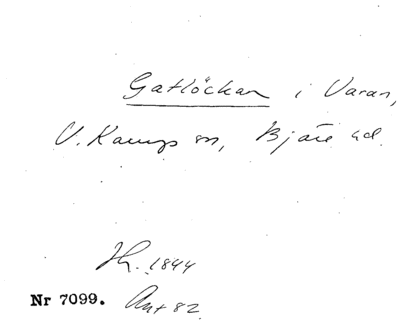 Gatlöckan i Varan,
V. Karups sn, Bjäre hd.
Th. 1844
Nr 7099. Ant 82.